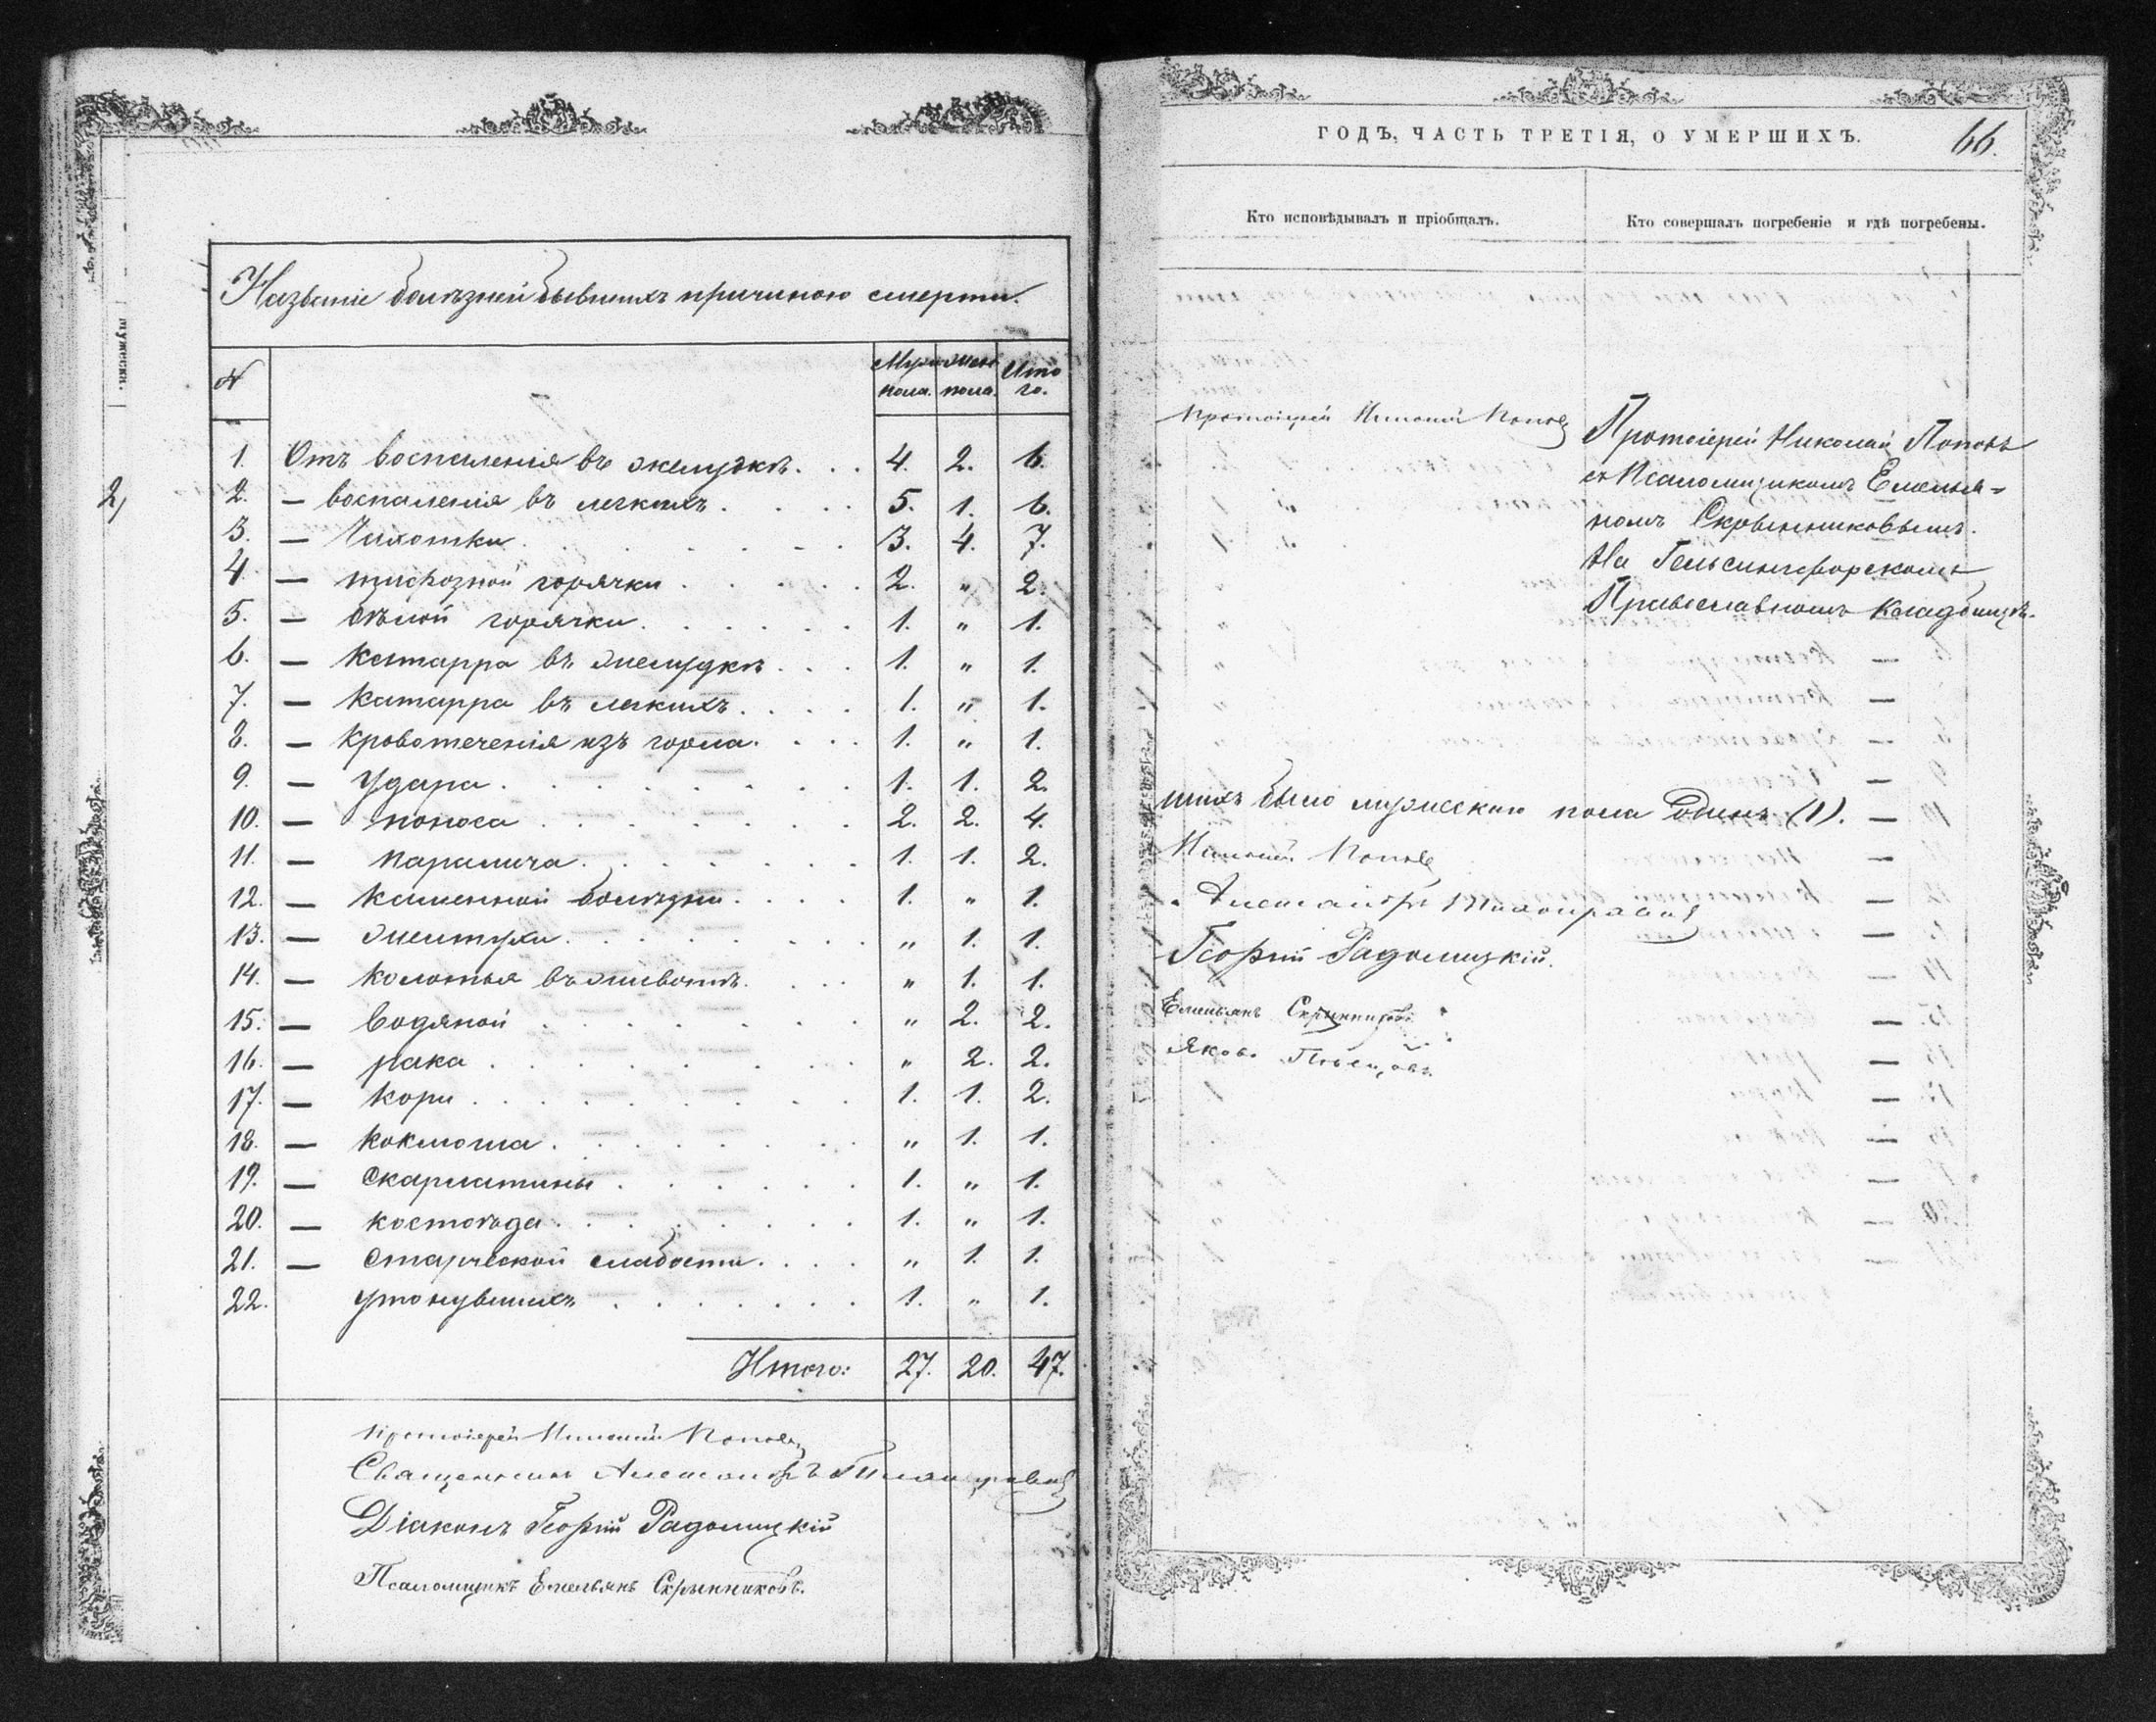 2,
мужеска.
Названіе болѣзней бывшихъ причиною смерти.
№ Муж. пола. Жен. пола. Ито го.
1. Отъ воспаленія въ желудкѣ. . . 4. 2. 6.
2. — воспаленія въ легкихъ . . . . 5. 1. 6.
3. — Чахотки . . . . . . . 3. 4. 7.
4. — тифозной горячки . . . . . 2. „ 2.
5. — бѣлой горячки . . . . . . 1. „ 1.
6. — Катарра въ желудкѣ . . . 1. „ 1.
7. — Катарра въ легкихъ . . . . 1. „ 1.
8. — Кровотеченія изъ горла . . . . 1. „ 1.
9. — Удара . . . . . . . . . 1. 1. 2.
10. — поноса . . . . . . . . 2. 2. 4.
11. — паралича . . . . . . . 1. 1. 2.
12. — каменной болѣзни . . . . 1. „ 1.
13. — Желтухи . . . . . . . . „ 1. 1.
14. — колотья въ животѣ . . . . „ 1. 1.
15. — водяной . . . . . . . . „ 2. 2.
16. — рака . . . . . . . . . „ 2. 2.
17. — кори . . . . . . . . . 1. 1. 2.
18. — коклюша . . . . . . . . „ 1. 1.
19. — скарлатины . . . . . . 1. „ 1.
20. — костоѣда . . . . . . . . 1. „ 1.
21. — старческой слабости . . . . „ 1. 1.
22. утонувшихъ . . . . . . . 1. „ 1.
Итого: 27. 20. 47.
Протоіерей Николай Поповъ
Священникъ Александръ
Діаконъ Георгій Радомицкій
Псаломщикъ Емельянъ Скрынниковъ.
ГОДЪ, ЧАСТЬ ТРЕТІЯ, О УМЕРШИХЪ.
66.
Кто исповѣдывалъ и пріобщалъ.
Кто совершалъ погребеніе и гдѣ погребены.
Протоіерей Николай Поповъ
Протоіерей Николай Поповъ
съ Псаломщикомъ Емелья=
номъ Скрынниковымъ.
На Гельсингфорскомъ
Православномъ кладбищѣ.
шихъ было мужескаго пола Одинъ (1).
Николай Поповъ
Александръ
Георгій Радомицкій.
Емельянъ Скрынниковъ
Яковъ